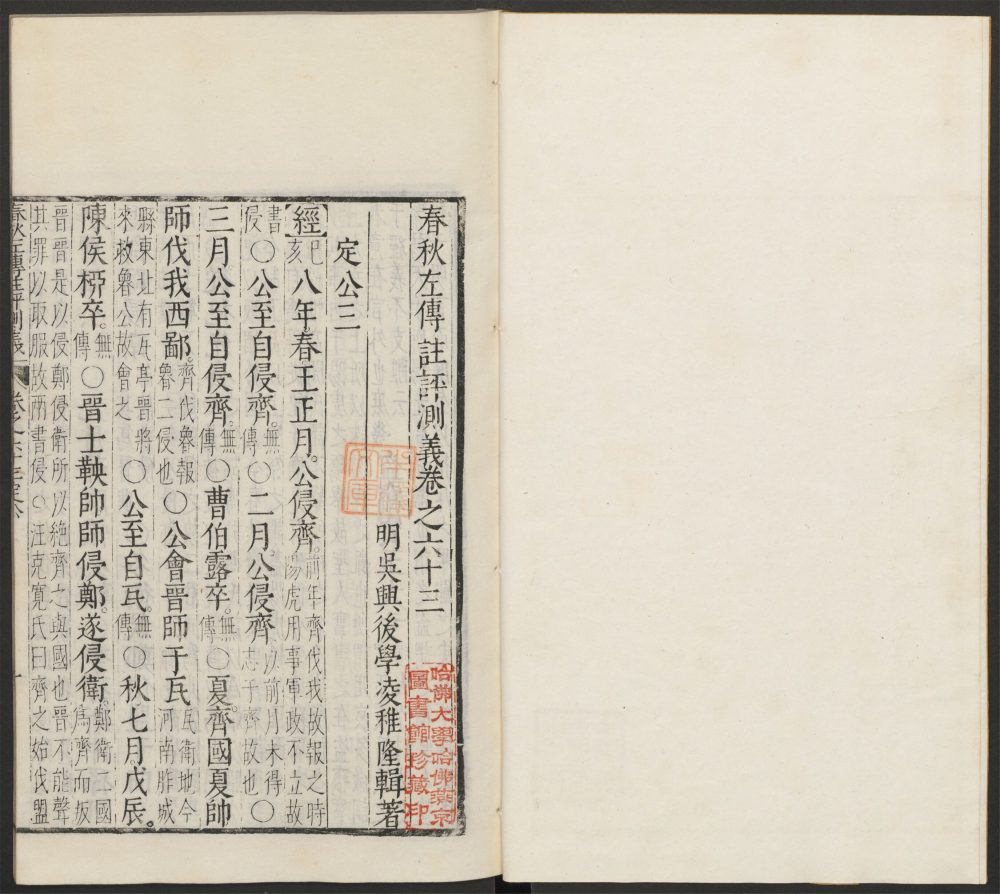 春秋左傳註評測義卷之六十三
明吳興後學凌稚隆輯著
哈佛大學哈佛燕京
圖書館珍藏印
定公三
【經】己亥八年。春。王正月。公侵齊。前年齊伐我故報之時陽虎用事軍政不立故
書侵〇公至自侵齊。無傳〇二月公侵齊以前月未得志于齊故也〇
三月公至自侵齊。無傳〇曹伯露卒。無傳〇夏。齊國夏帥
師伐我西鄙。齊伐魯報魯二侵也〇公會晉師于瓦瓦衛地今河南胙城
縣東北有瓦亭晉將來救魯公故會之〇公至自瓦。無傳〇秋七月戊辰。
陳侯柳卒。無傳〇晉士鞅帥師侵鄭。遂侵衛。鄭衛二國爲齊而叛
晉晉是以侵鄭侵衛所以絶齊之與國也晉不能聲
其罪以取服故兩書侵〇汪克寬氏曰齊之始伐盟
春秋左傳註評測義